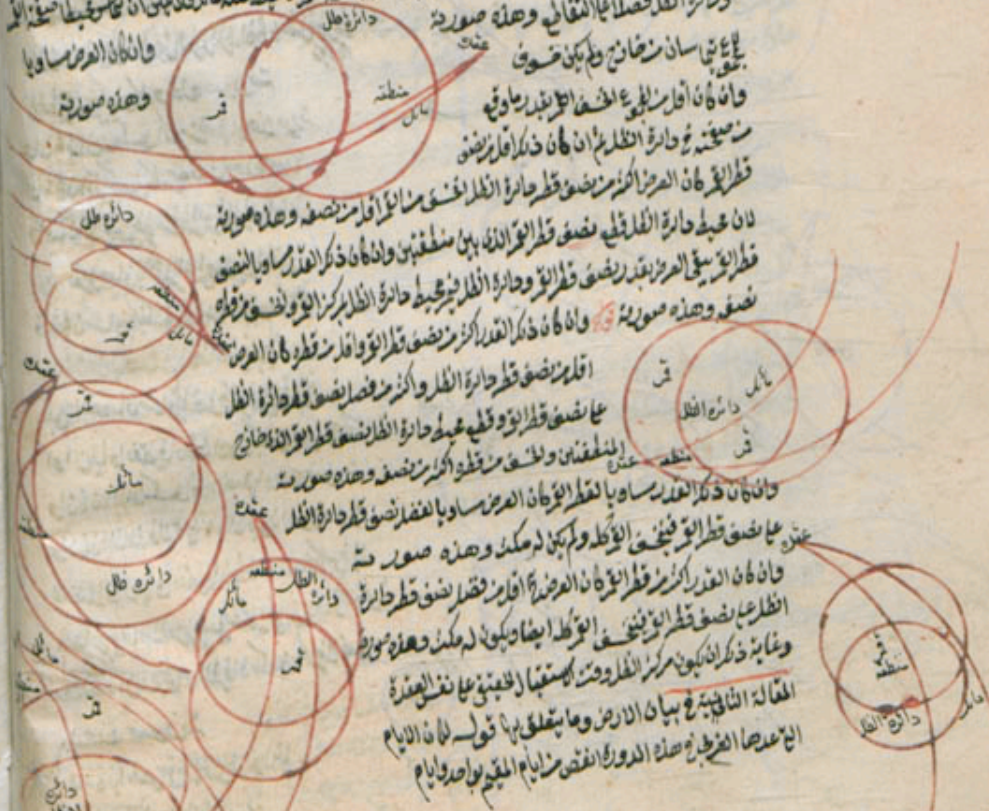 دائرة ظل
وهذه صورته
عقده
وان كان العرض مساويا
منطقه
مائل
قمر
وهذه صورته
وان كان اقل من المجموع انخسف القمر بقدر ما وقع
من صفحته في دائرة الظل ثم ان كان ذلك اقل من نصف
قطر القمر كان العرض اكثر من نصف قطر دائرة الظل انخسف من القمر اقل من نصفه وهذه صورته
لان محيط دائرة الظل قطع نصف قطر القمر الذي بين منطقتين وان كان ذلك القدر مساويا لنصف
قطر القمر يبقى العرض بقدر نصف قطر دائرة الظل فيمر محيط دائرة الظل بمركز القمر وانخسف من قمر
نصف وهذه صورته وان كان ذلك القدر اكثر من نصف قطر القمر واقل من قطره كان العرض
اقل من نصف قطر دائرة الظل واكثر من فصل نصف قطر دائرة الظل
على نصف قطر القمر وقطع محيط دائرة الظل نصف قطر القمر الذي خارج
المنطقتين وانخسف من قطره اكثر من نصفه وهذه صورته
وان كان ذلك القدر مساويا لقطر القمر كان العرض مساويا لفضل نصف قطر دائرة الظل
على نصف قطر القمر فينخسف القمر كله ولم يكن له مكث وهذه صورته
وان كان القدر اكثر من قطر القمر كان العرض اقل من فضل نصف قطر دائرة
الظل على نصف قطر القمر فينخسف القمر كله ايضا ويكون له مكث وهذه صورته
وغاية ذلك ان يكون مركز الظل وقت الاستقبال الحقيقي على نفس العقدة
المقالة الثانية في بيان الارض وما يتعلق بها قوله لان الايام
التي عدها في هذه الدورة انقص من ايام المقيم بواحد وايام
دائرة ظل
منطقه
مائل
قمر
عقده
قمر
مائل
دائرة ظل
عقده
منطقه
دائرة الظل
مائل
قمر
قمر
مائل
دائرة الظل
قمر
منطقه
عقده
عقده
قمر
منطقه
دائرة الظل
مائل
مائل
قمر
دائرة